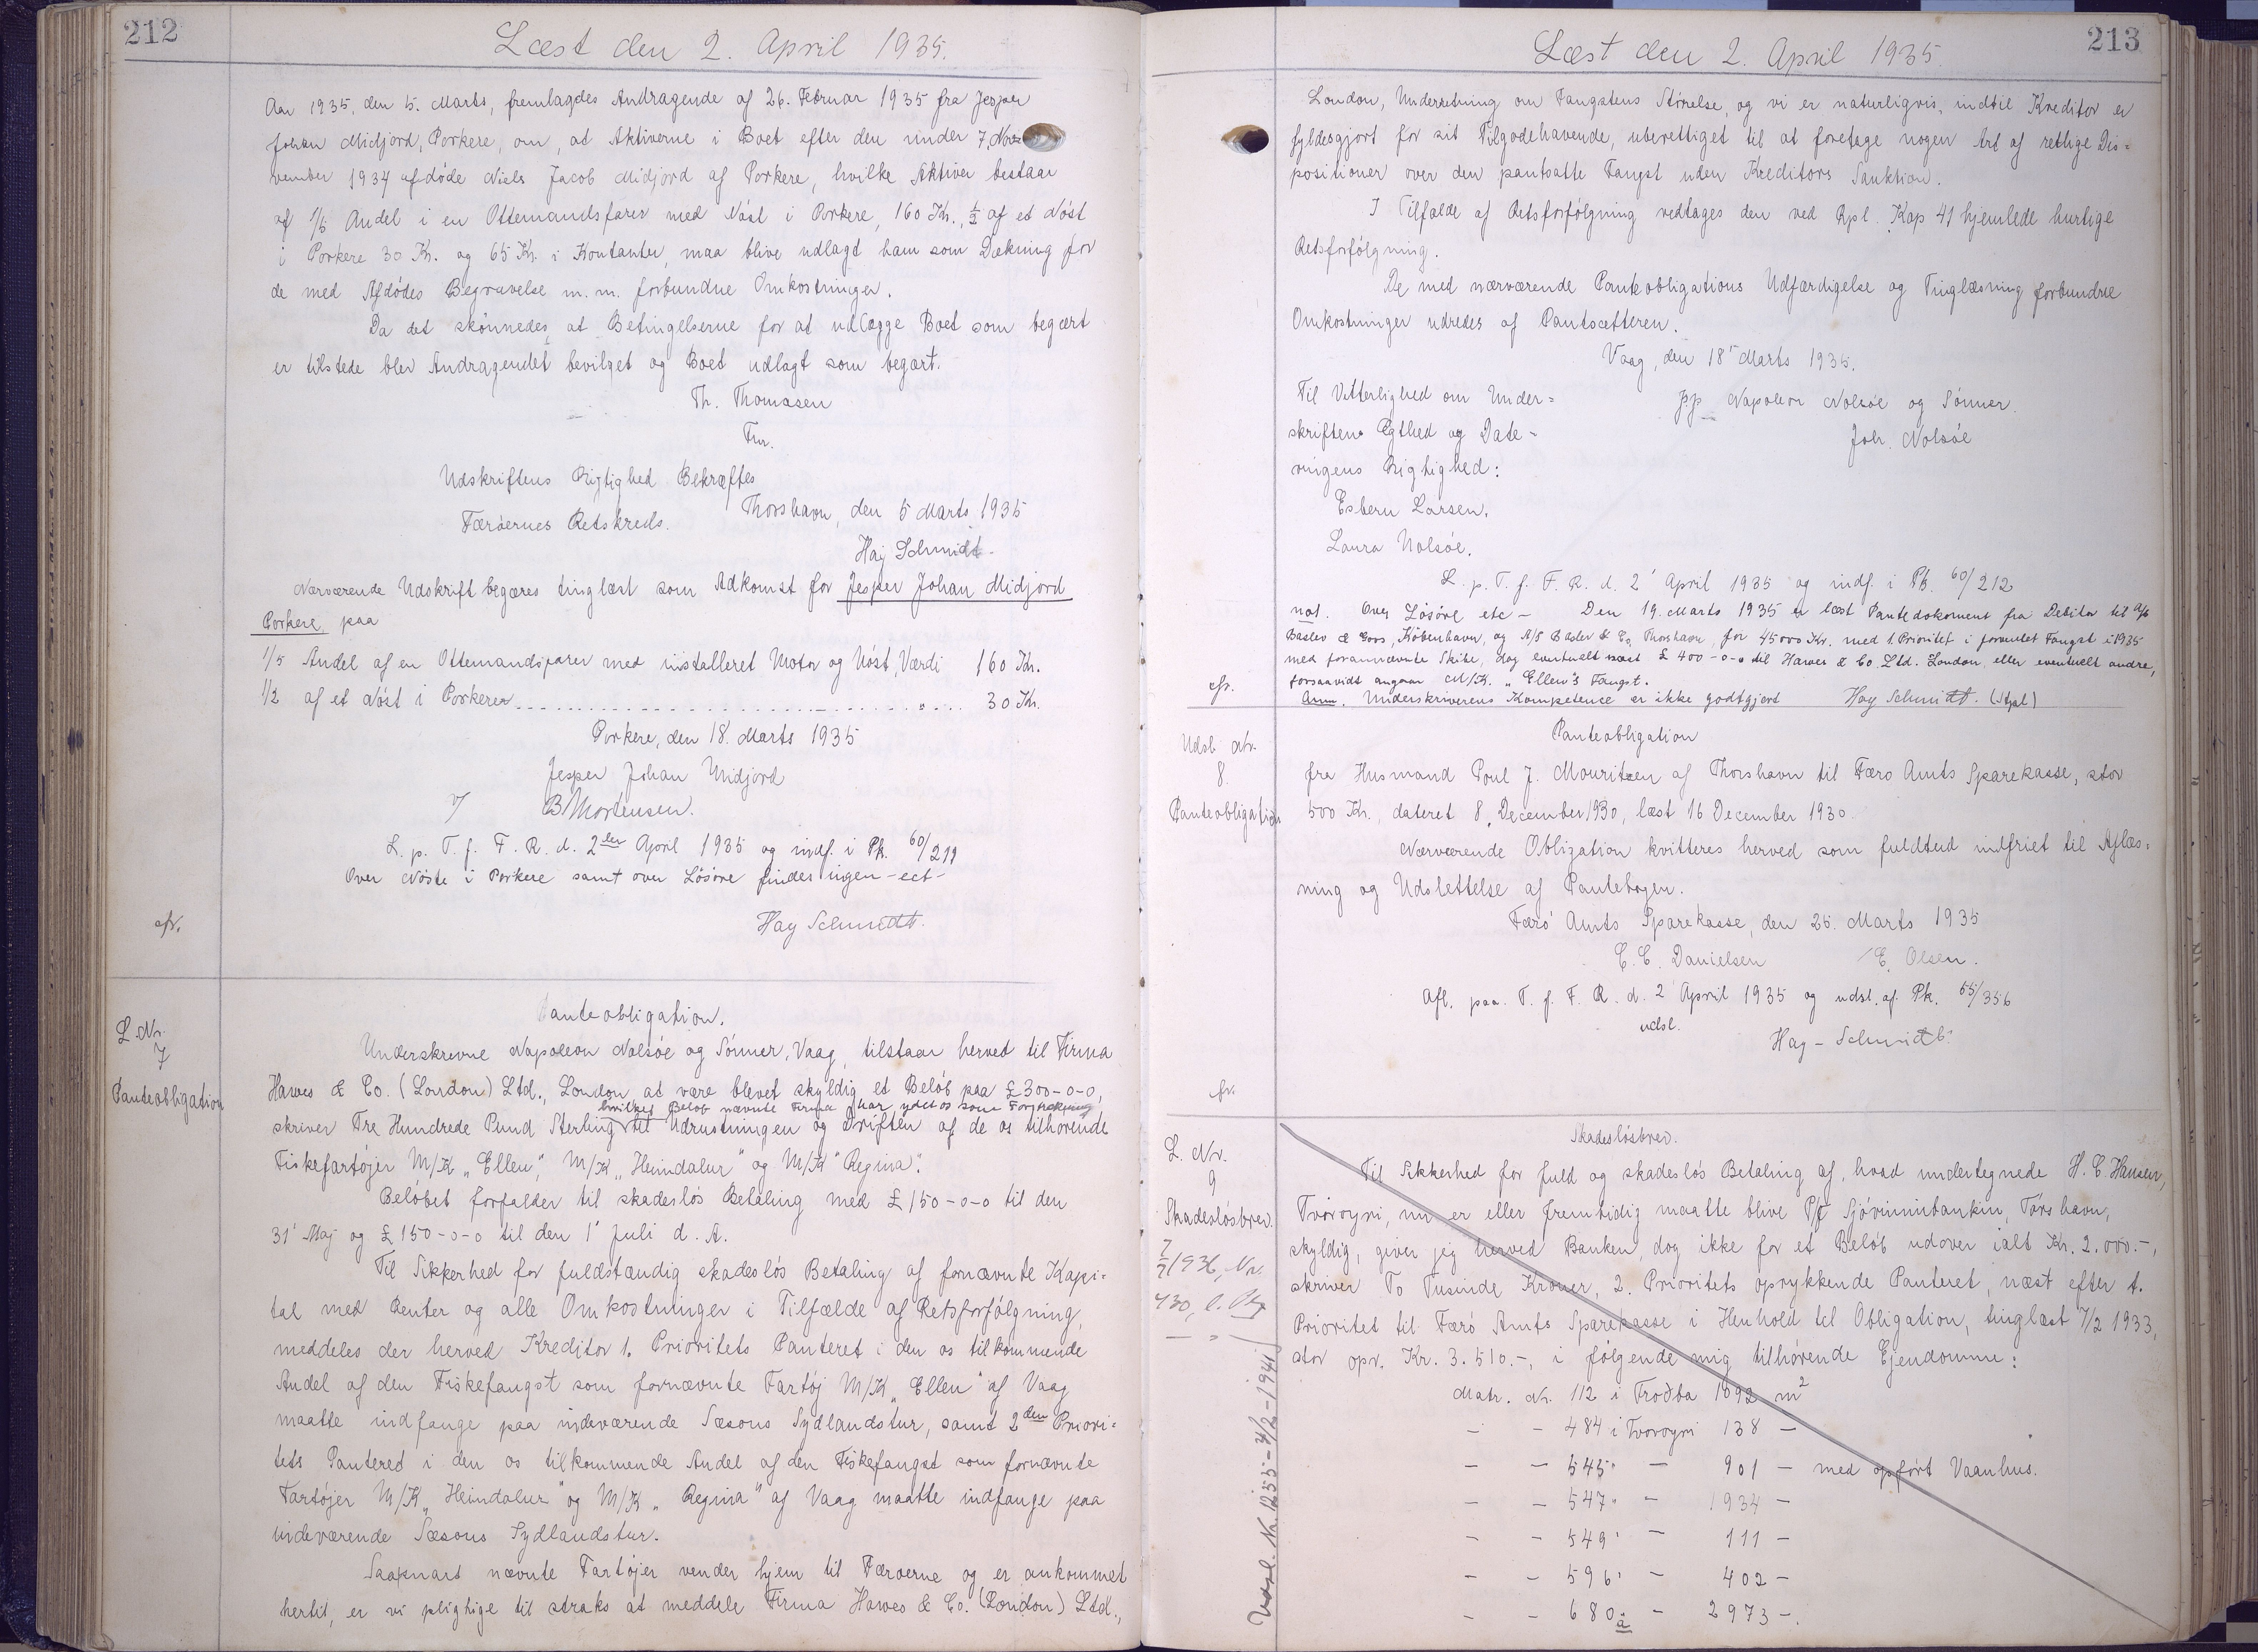 212
Læst den 2. April 1935.
Aar 1935, den 5. Marts, fremlagdes Andragende af 26. Februar 1935 fra Jesper
Johan Midjord, Porkere, om, at Aktiverne i Boet efter den under 7. No-
vember 1934 afdøde Niels Jacob Midjord af Porkere, hvilke Aktiver bestaar
af 1/5 Andel i en Ottemandsfarer med Nøst i Porkere, 160 Kr., ½ af et Nøst
i Porkere 30 Kr. og 65 Kr. i Kontanter, maa blive udlagt ham som Dækning for
de med Afdødes Begravelse m.m. forbundne Omkostninger.
Da det skønnedes, at Betingelserne for at udlægge Boet som begært
er tilstede blev Andragendet bevilget og Boet udlagt som begært.
Th. Thomasen
Fm.
Udskriftens Rigtighed Bekræftes
Færøernes Retskreds. Thorshavn, den 5 Marts 1935
Haj Schmidt.
Nærværende Udskrift begæres tinglæst som Adkomst for Jesper Johan Midjord
Porkere paa
1/5 Andel af en Ottemandsfarer med installeret Motor og Nøst, Værdi 160 Kr.
1/2 af et Nøst i Porkere 30 Kr.
Porkere, den 18. Marts 1935
Jesper Johan Midjord
v/ B Mortensen.
L. p. T. f. F. R. d. 2den April 1935 og indf. i Pk. 60/211
Over Nøste i Porkere samt over Løsøre findes ingen -ect-
Hay Schmidt.
L. Nr.
7
Panteobligation
Panteobligation.
Underskrevne Napoleon Nolsøe og Sønner, Vaag, tilstaar herved til Firma
Hawes & Co. (London) Ltd., London at være blevet skyldig et Beløb paa £300-0-0,
hvilket Beløb nævnte Firma har ydet os som Forstrækning
skriver Tre Hundrede Pund Sterling til Udrustningen og Driften af de os tilhørende
Fiskefartøjer M/K "Ellen", M/K "Heimdalur" og M/K "Regina".
Beløbet forfalder til skadesløs Betaling med £150-0-0 til den
31' Maj og £150-0-0 til den 1' Juli d. A.
Til Sikkerhed for fuldstændig skadesløs Betaling af fornævnte Kapi-
tal med Renter og alle Omkostninger i Tilfælde af Retsforfølgning,
meddeles der herved Kreditor 1. Prioritets Panteret i den os tilkommende
Andel af den Fiskefangst som fornævnte Fartøj M/K "Ellen" af Vaag
maatte indfange paa indeværende Sæsons Sydlandstur, samt 2den Priori-
tets Pantered i den os tilkommende Andel af den Fiskefangst som fornævnte
Fartøjer M/K "Heimdalur" og M/K "Regina" af Vaag maatte indfange paa
indeværende Sæsons Sydlandstur.
Saasnart nævnte Fartøjer vender hjem til Færøerne og er ankommet
hertil, er vi pligtige til straks at meddele Firma Hawes & Co. (London) Ltd.,
213
Læst den 2. April 1935.
London, Underretning om Fangstens Størelse, og vi er naturligvis, indtil Kreditor er
fyldesgjort for sit Tilgodehavende, uberettiget til at foretage nogen Art af retlige Dis-
positioner over den pantsatte Fangst uden Kreditors Sanktion.
I Tilfælde af Retsforfølgning vedtages den ved Rpl. Kap 41 hjemlede hurtige
Retsforfølgning.
De med nærværende Panteobligations Udfærdigelse og Tinglæsning forbundne
Omkostninger udredes af Pantsætteren.
Vaag, den 18' Marts 1935.
Til Vitterlighed om Under-
skriftens Ægthed og Date-
ringens Rigtighed:
pp Napoleon Nolsøe og Sønner.
Joh. Nolsøe
Esbern Larsen.
Laura Nolsøe.
L. p. T. f. F. R. d. 2' April 1935 og indf. i Pk. 60/212
not. Over Løsøre etc - Den 19. Marts 1935 er læst Pantedokument fra Debitor til A/S
Baslev & Goos, København, og A/S Basler & Co, Thorshavn, for 45000 Kr. med 1. Prioritet i forventet Fangst i 1935
med forannævnte Skibe, dog eventuelt næst £ 400-0-0 til Hawes & Co. Ltd. London, eller eventuelt andre,
forsaavidt angaar M/K. "Ellen's Fangst.
Anm. Underskriverens Kompetence er ikke godtgjort Hay Schmidt. (Stpl)
Udsl. Nr.
8.
Panteobligation
Panteobligation
fra Husmand Poul J. Mouritzen af Thorshavn til Færø Amts Sparekasse, stor
500 Kr., dateret 8. December 1930, læst 16 December 1930.
Nærværende Obligation kvitteres herved som fuldtud indfriet til Aflæs-
ning og Udslettelse af Pantebogen.
Færø Amts Sparekasse, den 25. Marts 1935
C. C. Danielsen / E. Olsen.
Afl. paa. T. f. F. R. d. 2 April 1935 og udsl. af Pk. 55/356
udsl.
Hay-Schmidt.
L. Nr.
9
Skadesløsbrev.
Skadesløsbrev.
Til Sikkerhed for fuld og skadesløs Betaling af, hvad undertegnede H. C. Hansen,
Tvøroyri, nu er eller fremtidig maatte blive P/f Sjóvinnubankin, Tórshavn,
skyldig, giver jeg herved Banken, dog ikke for et Beløb udover ialt Kr. 2.000.-,
skriver To Tusinde Kroner, 2. Prioritets oprykkende Panteret, næst efter 1.
Prioritet til Færø Amts Sparekasse i Henhold til Obligation, tinglæst 7/2 1933,
stor opr. Kr. 3.510.-, i følgende mig tilhørende Ejendomme:
Matr. Nr. 112 i Froðba 1092 m²
- - 484 i Tvøroyri 138 -
- - 545 - 901 - med opført Vaanhus.
- - 547 - 1934 -
- - 549 - 111 -
- - 596 - 402 -
- - 680a - 2973 -.